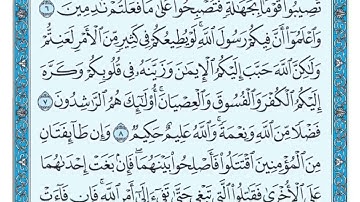 تُصِيبُوا۟ قَوْمًۢا بِجَهَٰلَةٍ فَتُصْبِحُوا۟ عَلَىٰ مَا فَعَلْتُمْ نَٰدِمِينَ ٦
وَٱعْلَمُوٓا۟ أَنَّ فِيكُمْ رَسُولَ ٱللَّهِ ۚ لَوْ يُطِيعُكُمْ فِى كَثِيرٍ مِّنَ ٱلْأَمْرِ لَعَنِتُّمْ
وَلَٰكِنَّ ٱللَّهَ حَبَّبَ إِلَيْكُمُ ٱلْإِيمَٰنَ وَزَيَّنَهُۥ فِى قُلُوبِكُمْ وَكَرَّهَ
إِلَيْكُمُ ٱلْكُفْرَ وَٱلْفُسُوقَ وَٱلْعِصْيَانَ ۚ أُو۟لَٰٓئِكَ هُمُ ٱلرَّٰشِدُونَ ٧
فَضْلًا مِّنَ ٱللَّهِ وَنِعْمَةً ۚ وَٱللَّهُ عَلِيمٌ حَكِيمٌ ٨ وَإِن طَآئِفَتَانِ
مِنَ ٱلْمُؤْمِنِينَ ٱقْتَتَلُوا۟ فَأَصْلِحُوا۟ بَيْنَهُمَا ۖ فَإِنۢ بَغَتْ إِحْدَىٰهُمَا
عَلَى ٱلْأُخْرَىٰ فَقَٰتِلُوا۟ ٱلَّتِى تَبْغِى حَتَّىٰ تَفِىٓءَ إِلَىٰٓ أَمْرِ ٱللَّهِ ۚ فَإِن فَآءَتْ